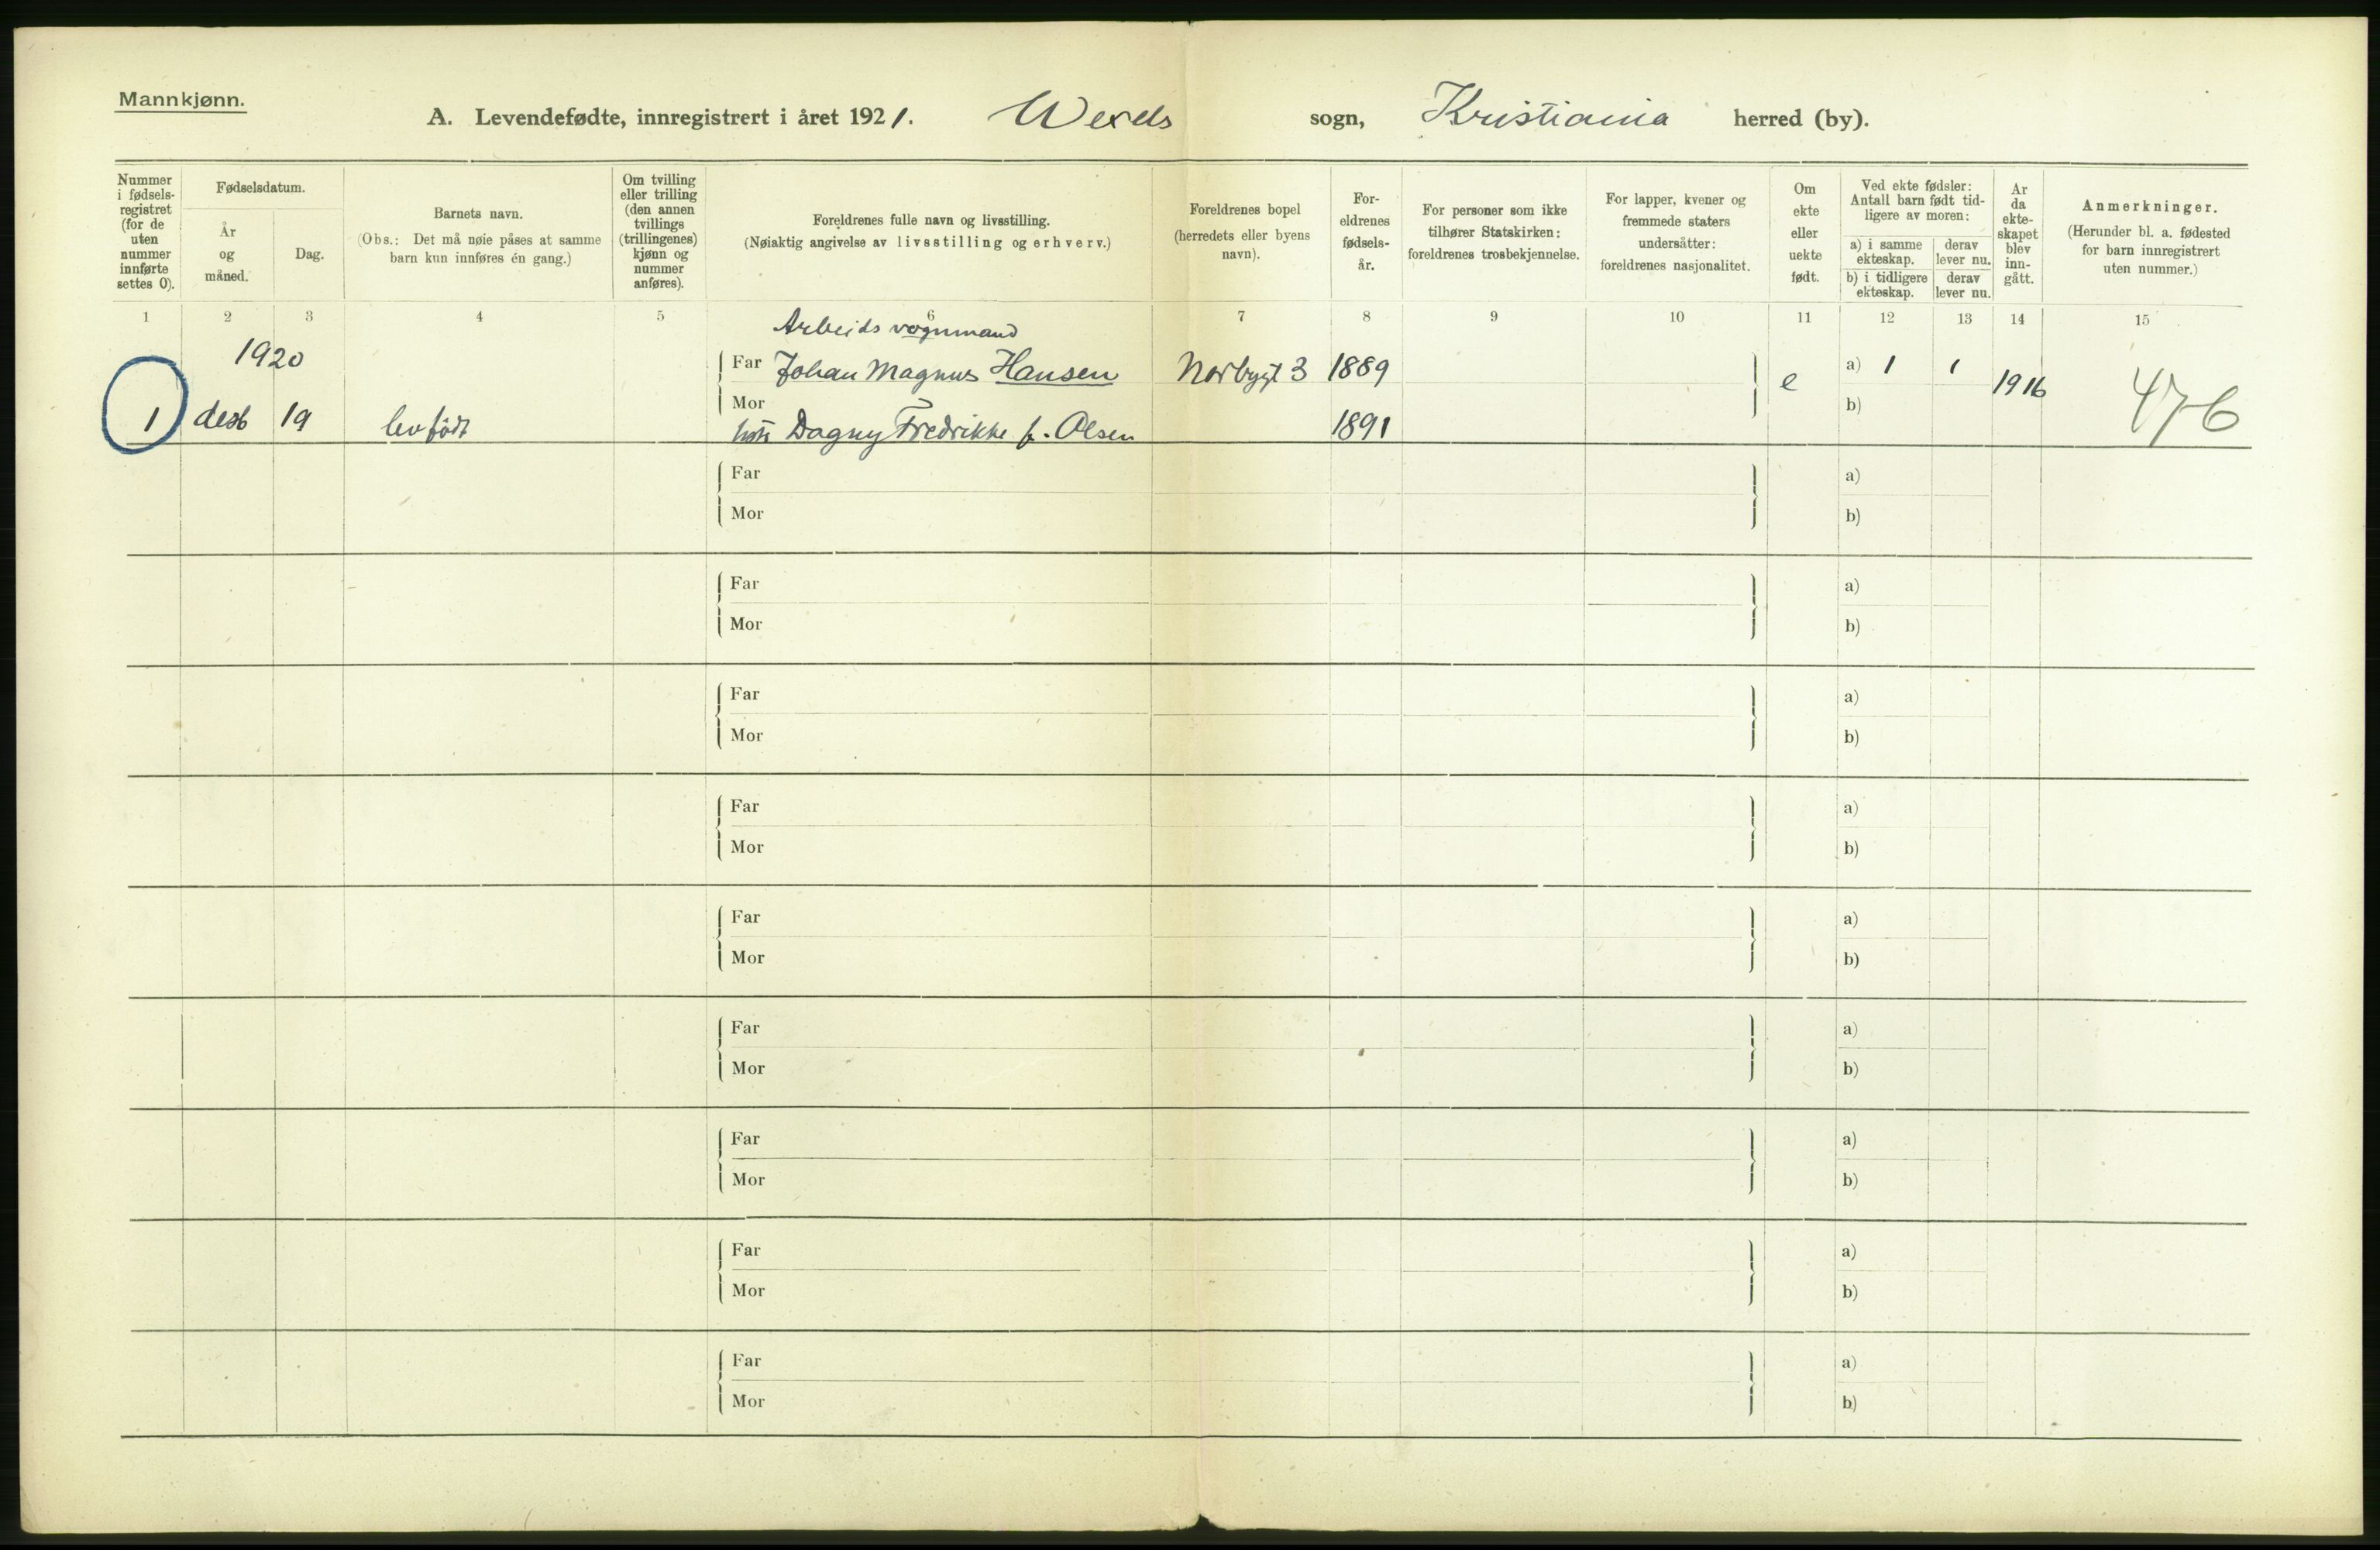 Mannkjønn.
A. Levendefødte, innregistrert i året 1921. Wexels sogn, Kristiania herred (by).
Nummer i fødsels-registret (for de uten nummer innførte settes 0).
Fødselsdatum.
År og måned.
Dag.
Barnets navn.
(Obs.: Det må nøie påses at samme barn kun innføres én gang.)
Om tvilling eller trilling (den annen tvillings (trillingenes) kjønn og nummer anføres).
Foreldrenes fulle navn og livsstilling.
(Nøiaktig angivelse av livsstilling og erhverv.)
Foreldrenes bopel
(herredets eller byens navn).
For-eldrenes fødsels-år.
For personer som ikke tilhører Statskirken: foreldrenes trosbekjennelse.
For lapper, kvener og fremmede staters undersåtter: foreldrenes nasjonalitet.
Om ekte eller uekte født.
Ved ekte fødsler: Antall barn født tid-ligere av moren:
a) i samme ekteskap.
derav lever nu.
b) i tidligere ekteskap.
derav lever nu.
Ar da ekte-skapet blev inn-gått.
Anmerkninger.
(Herunder bl. a. fødested for barn innregistrert uten nummer.)
1 2 3 4 5 6 7 8 9 10 11 12 13 14 15
Arbeids vognmand
1920
Far Johan Magnus Hansen Norbygt 3 1889 e a) 1 1 1916 476
Mor b)
1 desb 19 lev født Dagny Fredrikke f. Olsen 1891
Far a)
Mor b)
Far a)
Mor b)
Far a)
Mor b)
Far a)
Mor b)
Far a)
Mor b)
Far a)
Mor b)
Far a)
Mor b)
Far a)
Mor b)
Far a)
Mor b)